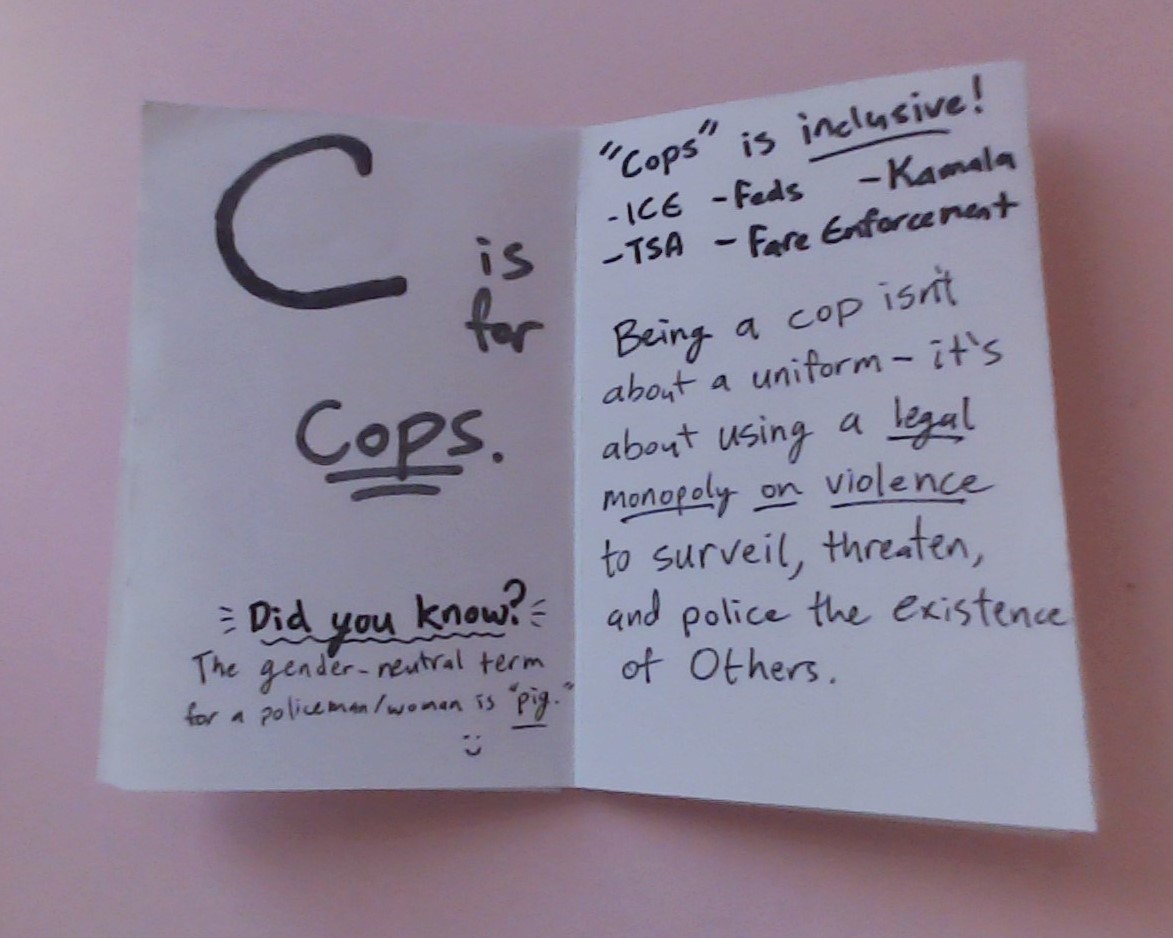 C
is
for
Cops.
Did you know?
The gender-neutral term
for a policeman/woman is "pig."
"Cops" is inclusive!
-ICE -Feds -Kamala
-TSA - Fare Enforcement
Being a cop isn't
about a uniform - it's
about using a legal
monopoly on violence
to surveil, threaten,
and police the existence
of Others.